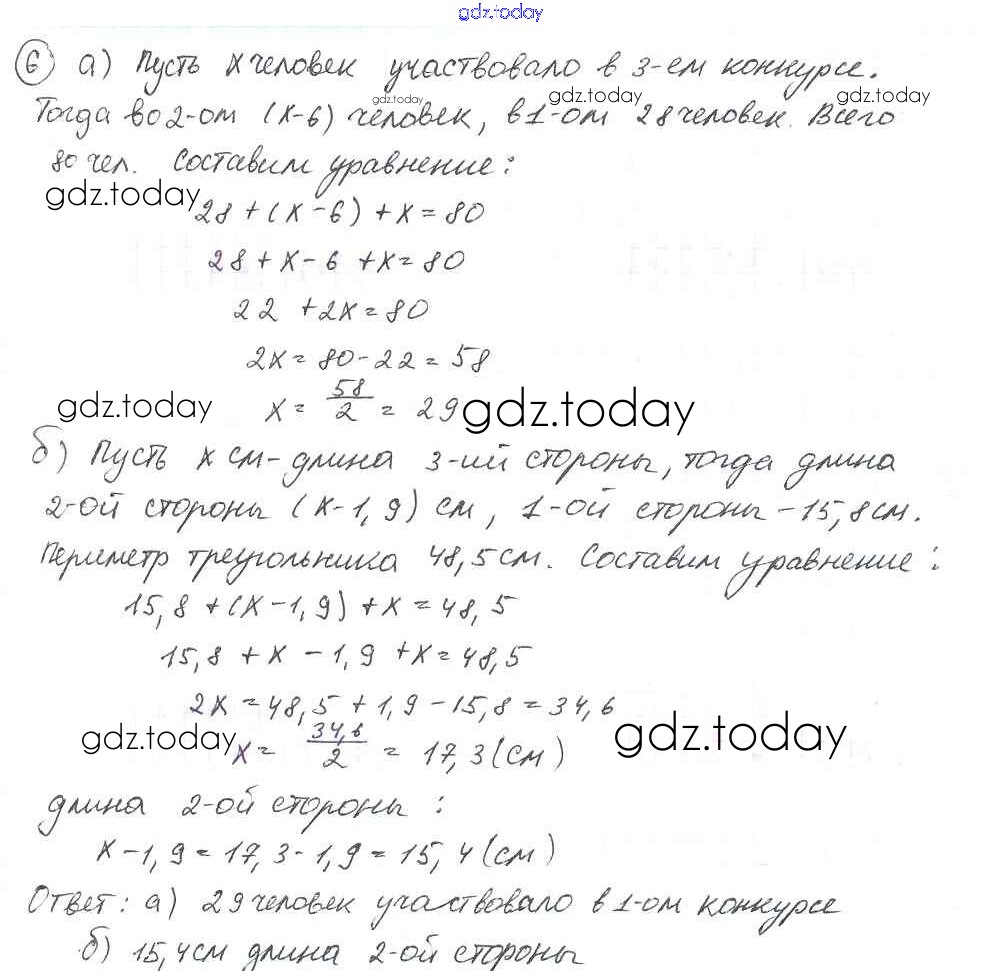 gdz.today
6 а) Пусть x человек участвовало в 3-ем конкурсе.
gdz.today gdz.today gdz.today
Тогда во 2-ом (x-6) человек, в 1-ом 28 человек. Всего
80 чел. Составим уравнение:
gdz.today
28 + (x-6) + x = 80
28 + x - 6 + x = 80
22 + 2x = 80
2x = 80 - 22 = 58
gdz.today
x = 58/2 = 29
gdz.today
б) Пусть x см - длина 3-ий стороны, тогда длина
2-ой стороны (x-1,9) см, 1-ой стороны - 15,8 см.
Периметр треугольника 48,5 см. Составим уравнение:
15,8 + (x-1,9) + x = 48,5
15,8 + x - 1,9 + x = 48,5
2x = 48,5 + 1,9 - 15,8 = 34,6
gdz.today
x = 34,6/2 = 17,3 (см)
gdz.today
длина 2-ой стороны:
x - 1,9 = 17,3 - 1,9 = 15,4 (см)
Ответ: а) 29 человек участвовало в 1-ом конкурсе
б) 15,4 см длина 2-ой стороны